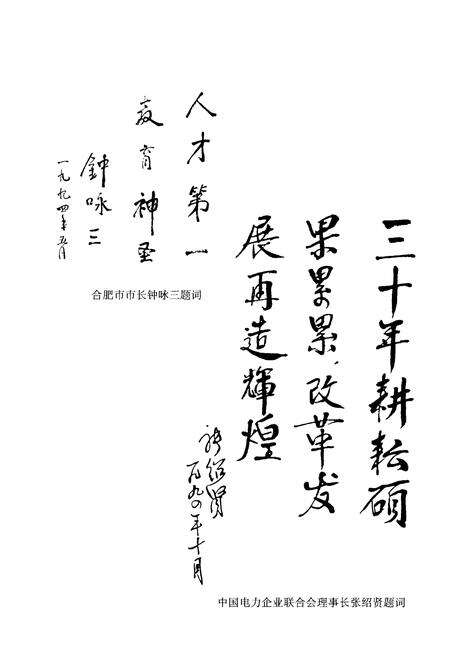 人才第一
教育神圣
鈡咏三
一九九四年五月
合肥市市长钟咏三题词
三十年耕耘硕
果累累.改革发
展再造輝煌
张绍贤
一九九四年十月
中国电力企业联合会理事长张绍贤题词